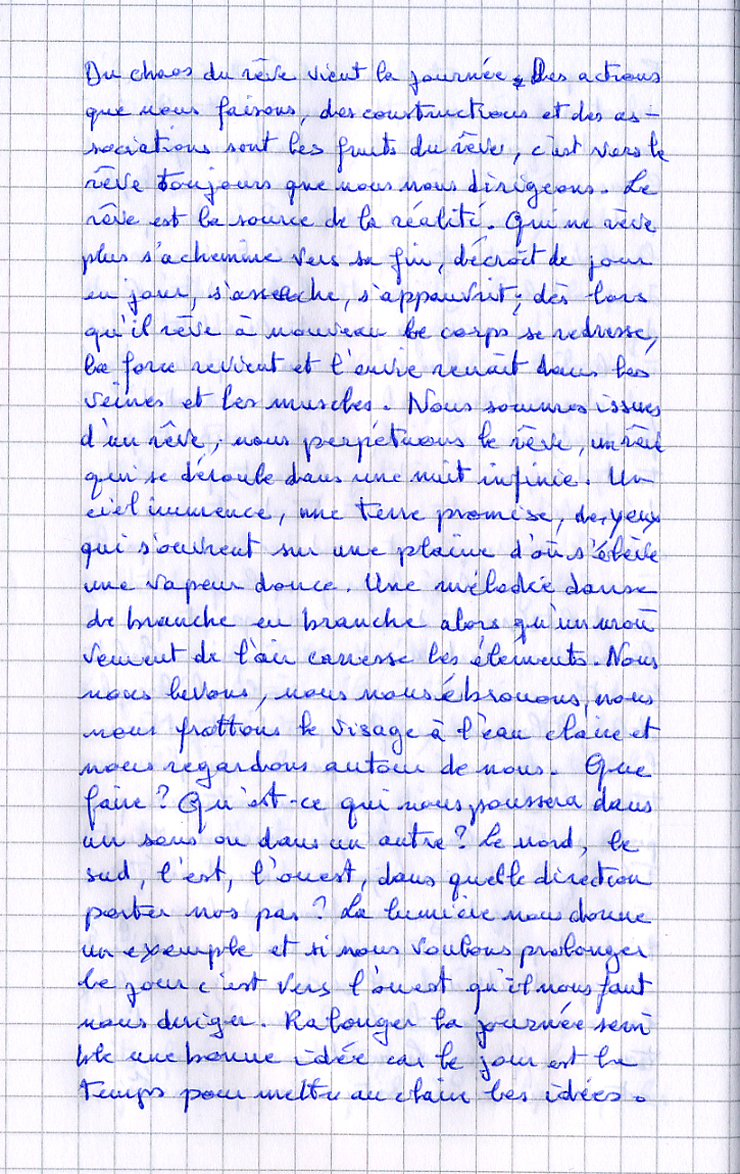 Du chaos du rêve vient la journée. Des actions
que nous faisons, des constructions et des as-
sociations sont les fruits du rêve, c'est vers le
rêve toujours que nous nous dirigeons. Le
rêve est la source de la réalité. Qui ne rêve
plus s'achemine vers sa fin, décroit de jour
en jour, s'assèche, s'appauvrit; dès lors
qu'il rêve à nouveau le corps se redresse,
la force revient et l'envie renait dans les
veines et les muscles. Nous sommes issues
d'un rêve, nous perpétuons le rêve, un rêve
qui se déroule dans une nuit infinie. Un
ciel immence, une terre promise, des yeux
qui s'ouvrent sur une plaine d'où s'élève
une vapeur douce. Une mélodie danse
de branche en branche alors qu'un mou
vement de l'air caresse les éléments. Nous
nous levons, nous nous ébrouons, nous
nous frottons le visage à l'eau claire et
nous regardons autour de nous. Que
faire? Qu'est-ce qui nous poussera dans
un sens ou dans un autre? Le nord, le
sud, l'est, l'ouest, dans quelle direction
porter nos pas? La lumière nous donne
un exemple et si nous voulons prolonger
le jour c'est vers l'ouest qu'il nous faut
nous diriger. Ralonger la journée sem
ble une bonne idée car le jour est le
temps pour mettre au clair les idées.